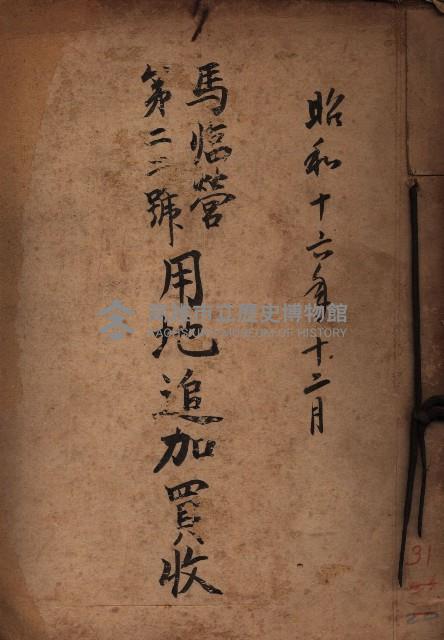 昭和十六年十二月
馬臨營
第二二號
用地追加買收
高雄市立歷史博物館
KAOHSIUNG MUSEUM OF HISTORY
31
22